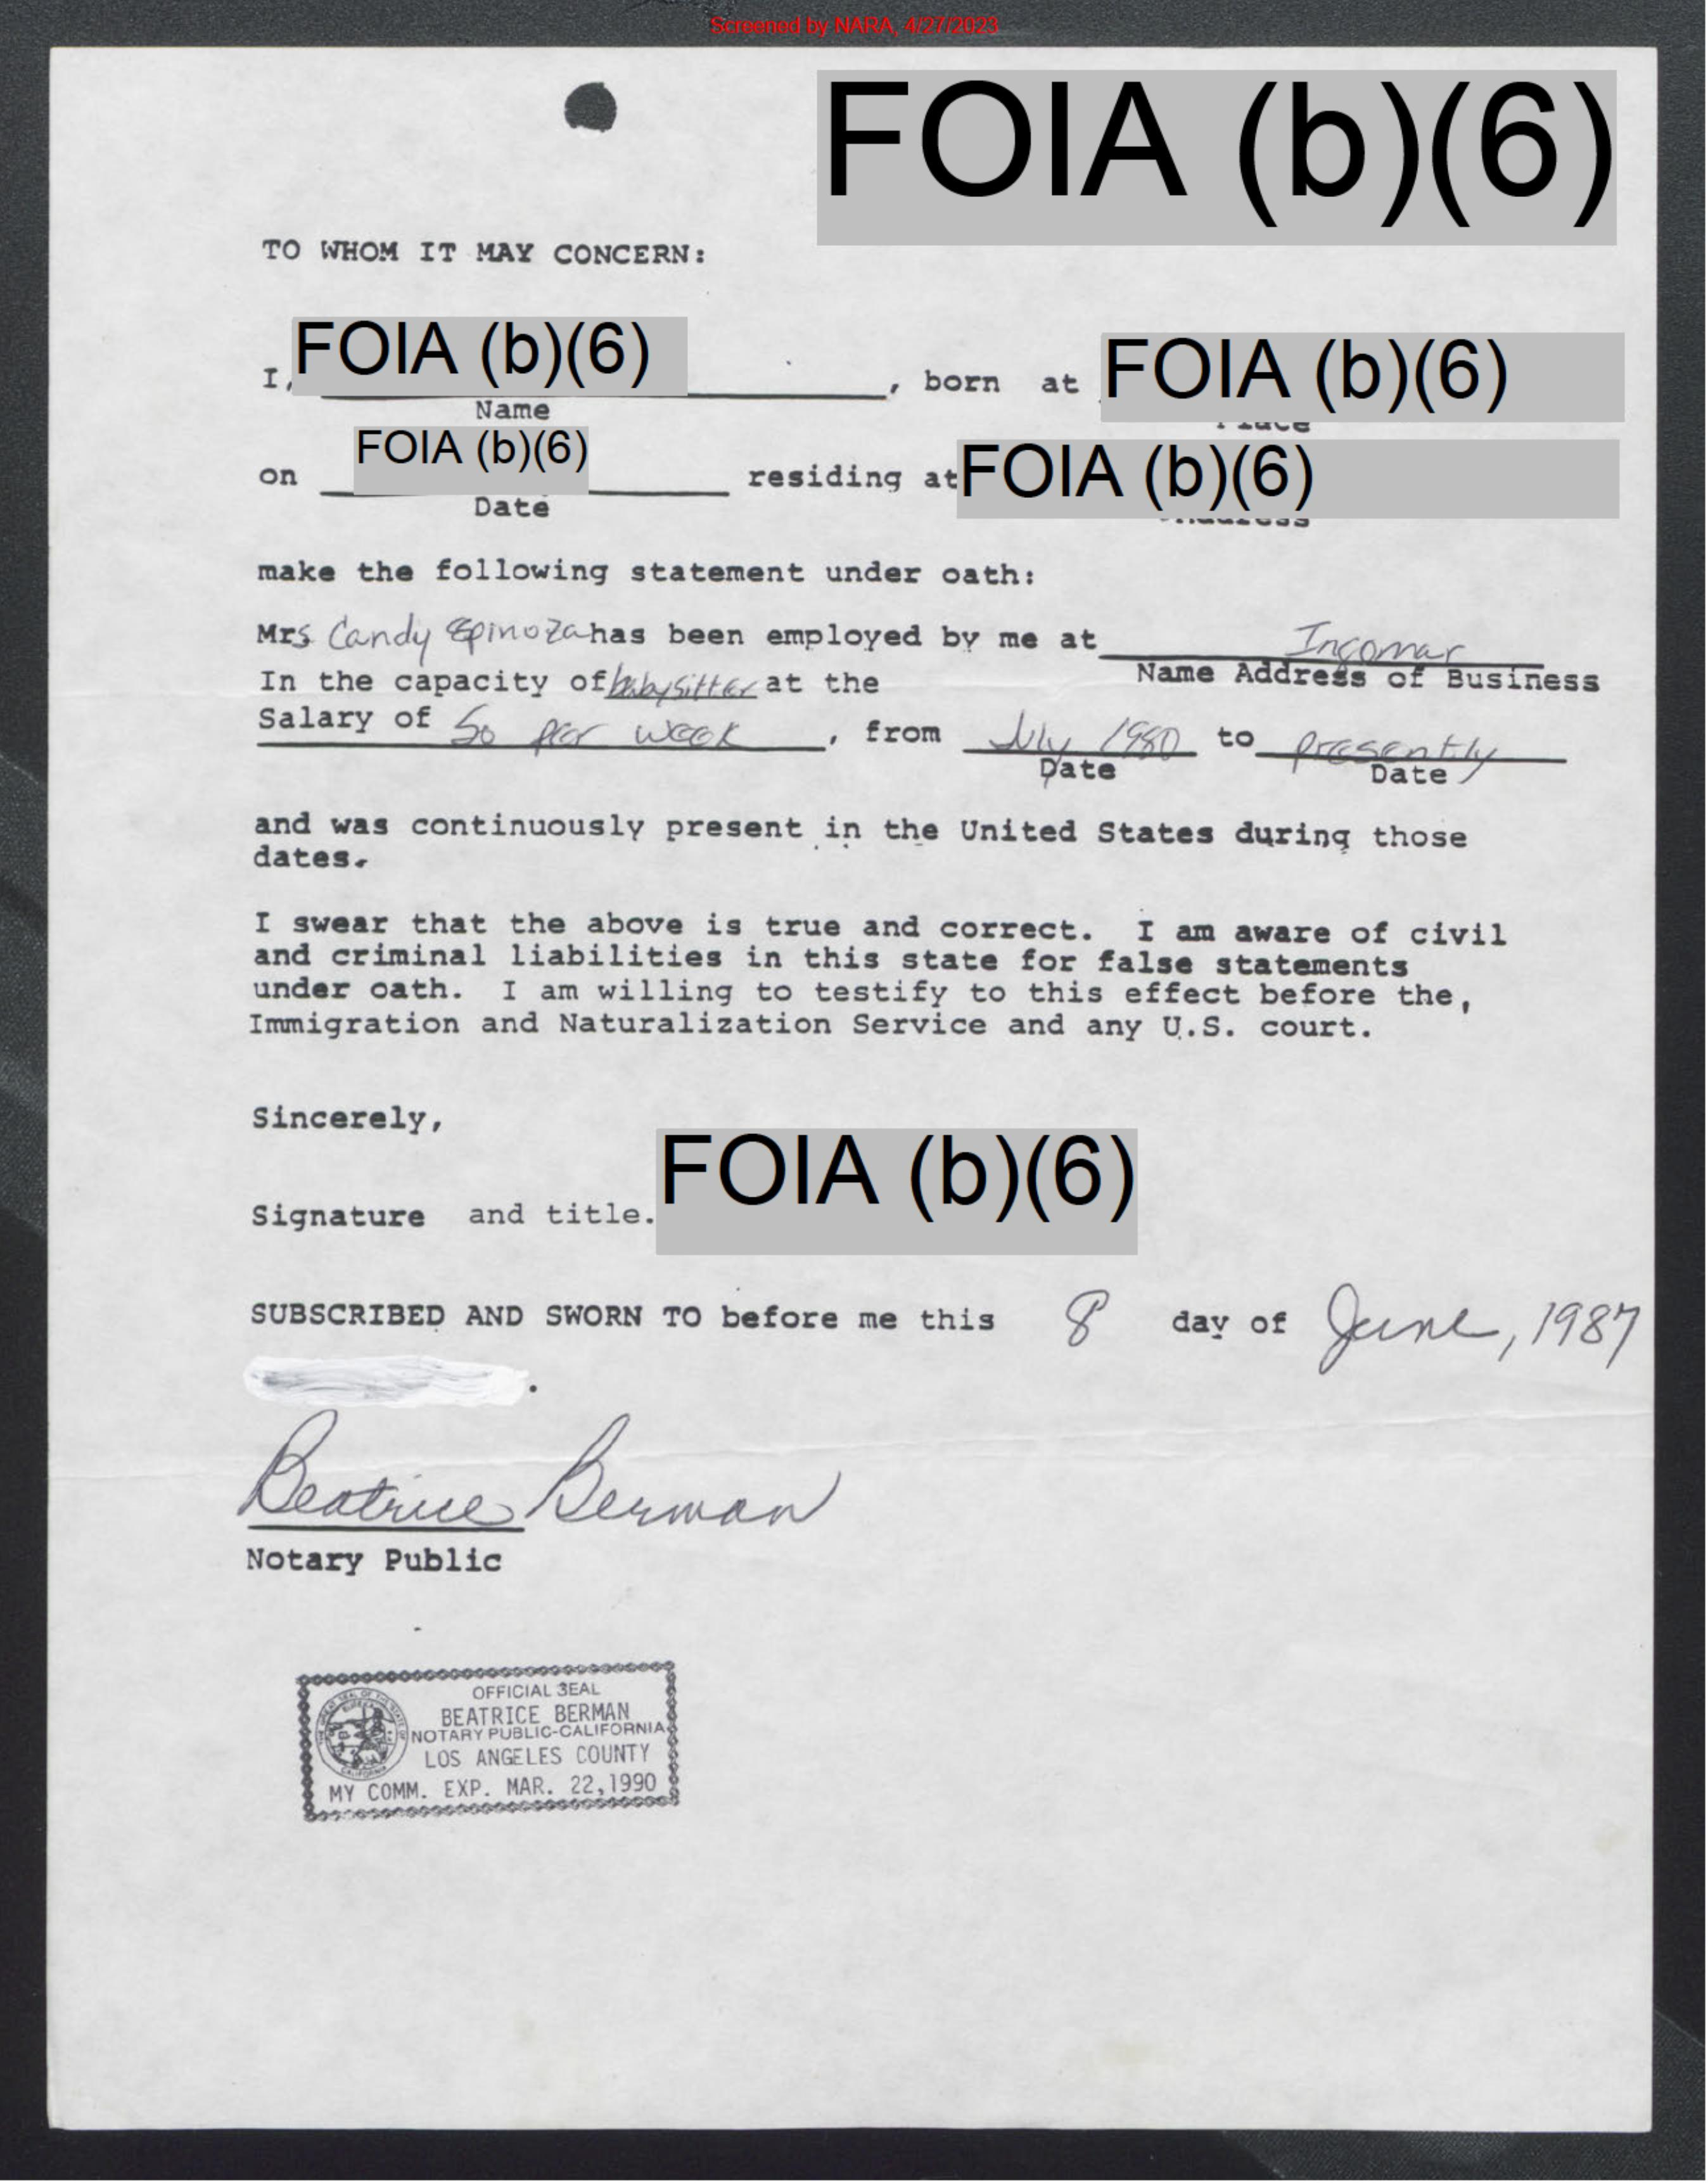 Screened by NARA, 4/27/2023
FOIA (b)(6)
TO WHOM IT MAY CONCERN:
I, FOIA (b)(6) , born at FOIA (b)(6)
Name Place
on FOIA (b)(6) residing at FOIA (b)(6)
Date Address
make the following statement under oath:
Mrs Candy Epinoza has been employed by me at Ingomar
Name Address of Business
In the capacity of babysitter at the
Salary of 50 per week , from July 1980 to presently
Date Date
and was continuously present in the United States during those
dates.
I swear that the above is true and correct. I am aware of civil
and criminal liabilities in this state for false statements
under oath. I am willing to testify to this effect before the,
Immigration and Naturalization Service and any U.S. court.
Sincerely,
Signature and title. FOIA (b)(6)
SUBSCRIBED AND SWORN TO before me this 8 day of June, 1987
.
Beatrice Berman
Notary Public
OFFICIAL SEAL
BEATRICE BERMAN
NOTARY PUBLIC-CALIFORNIA
LOS ANGELES COUNTY
MY COMM. EXP. MAR. 22,1990